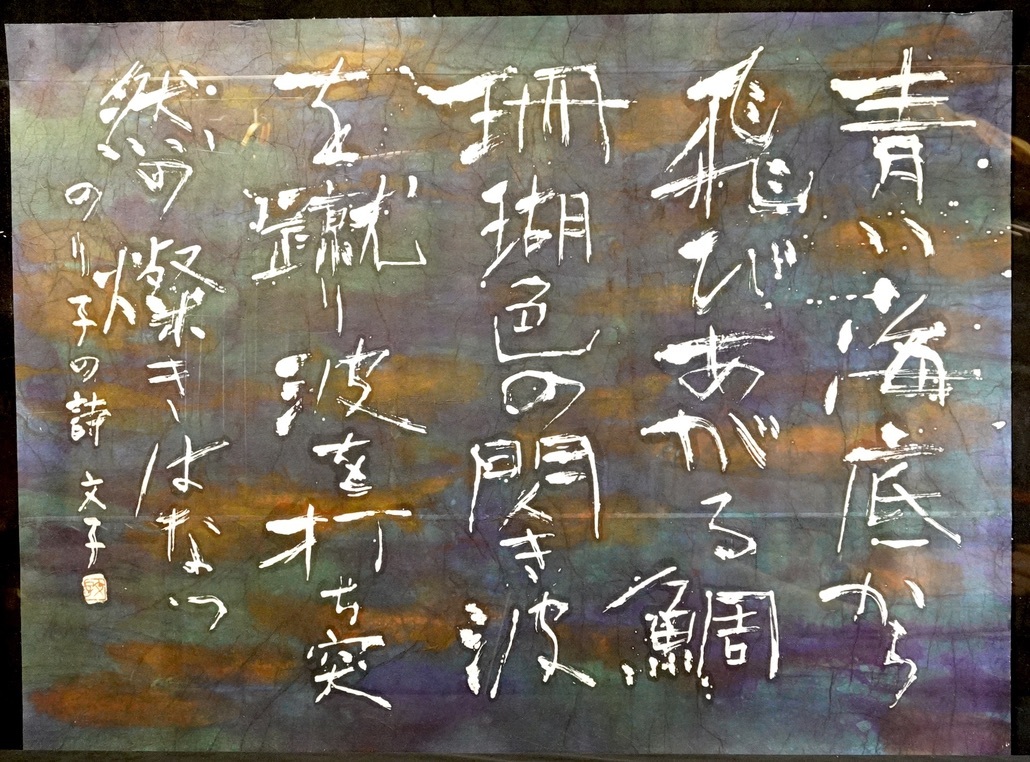 青い海底から
飛びあがる鯛
珊瑚色の閃き波
を蹴り波を打ち突
然の燦きはなつ
のり子の詩 文子